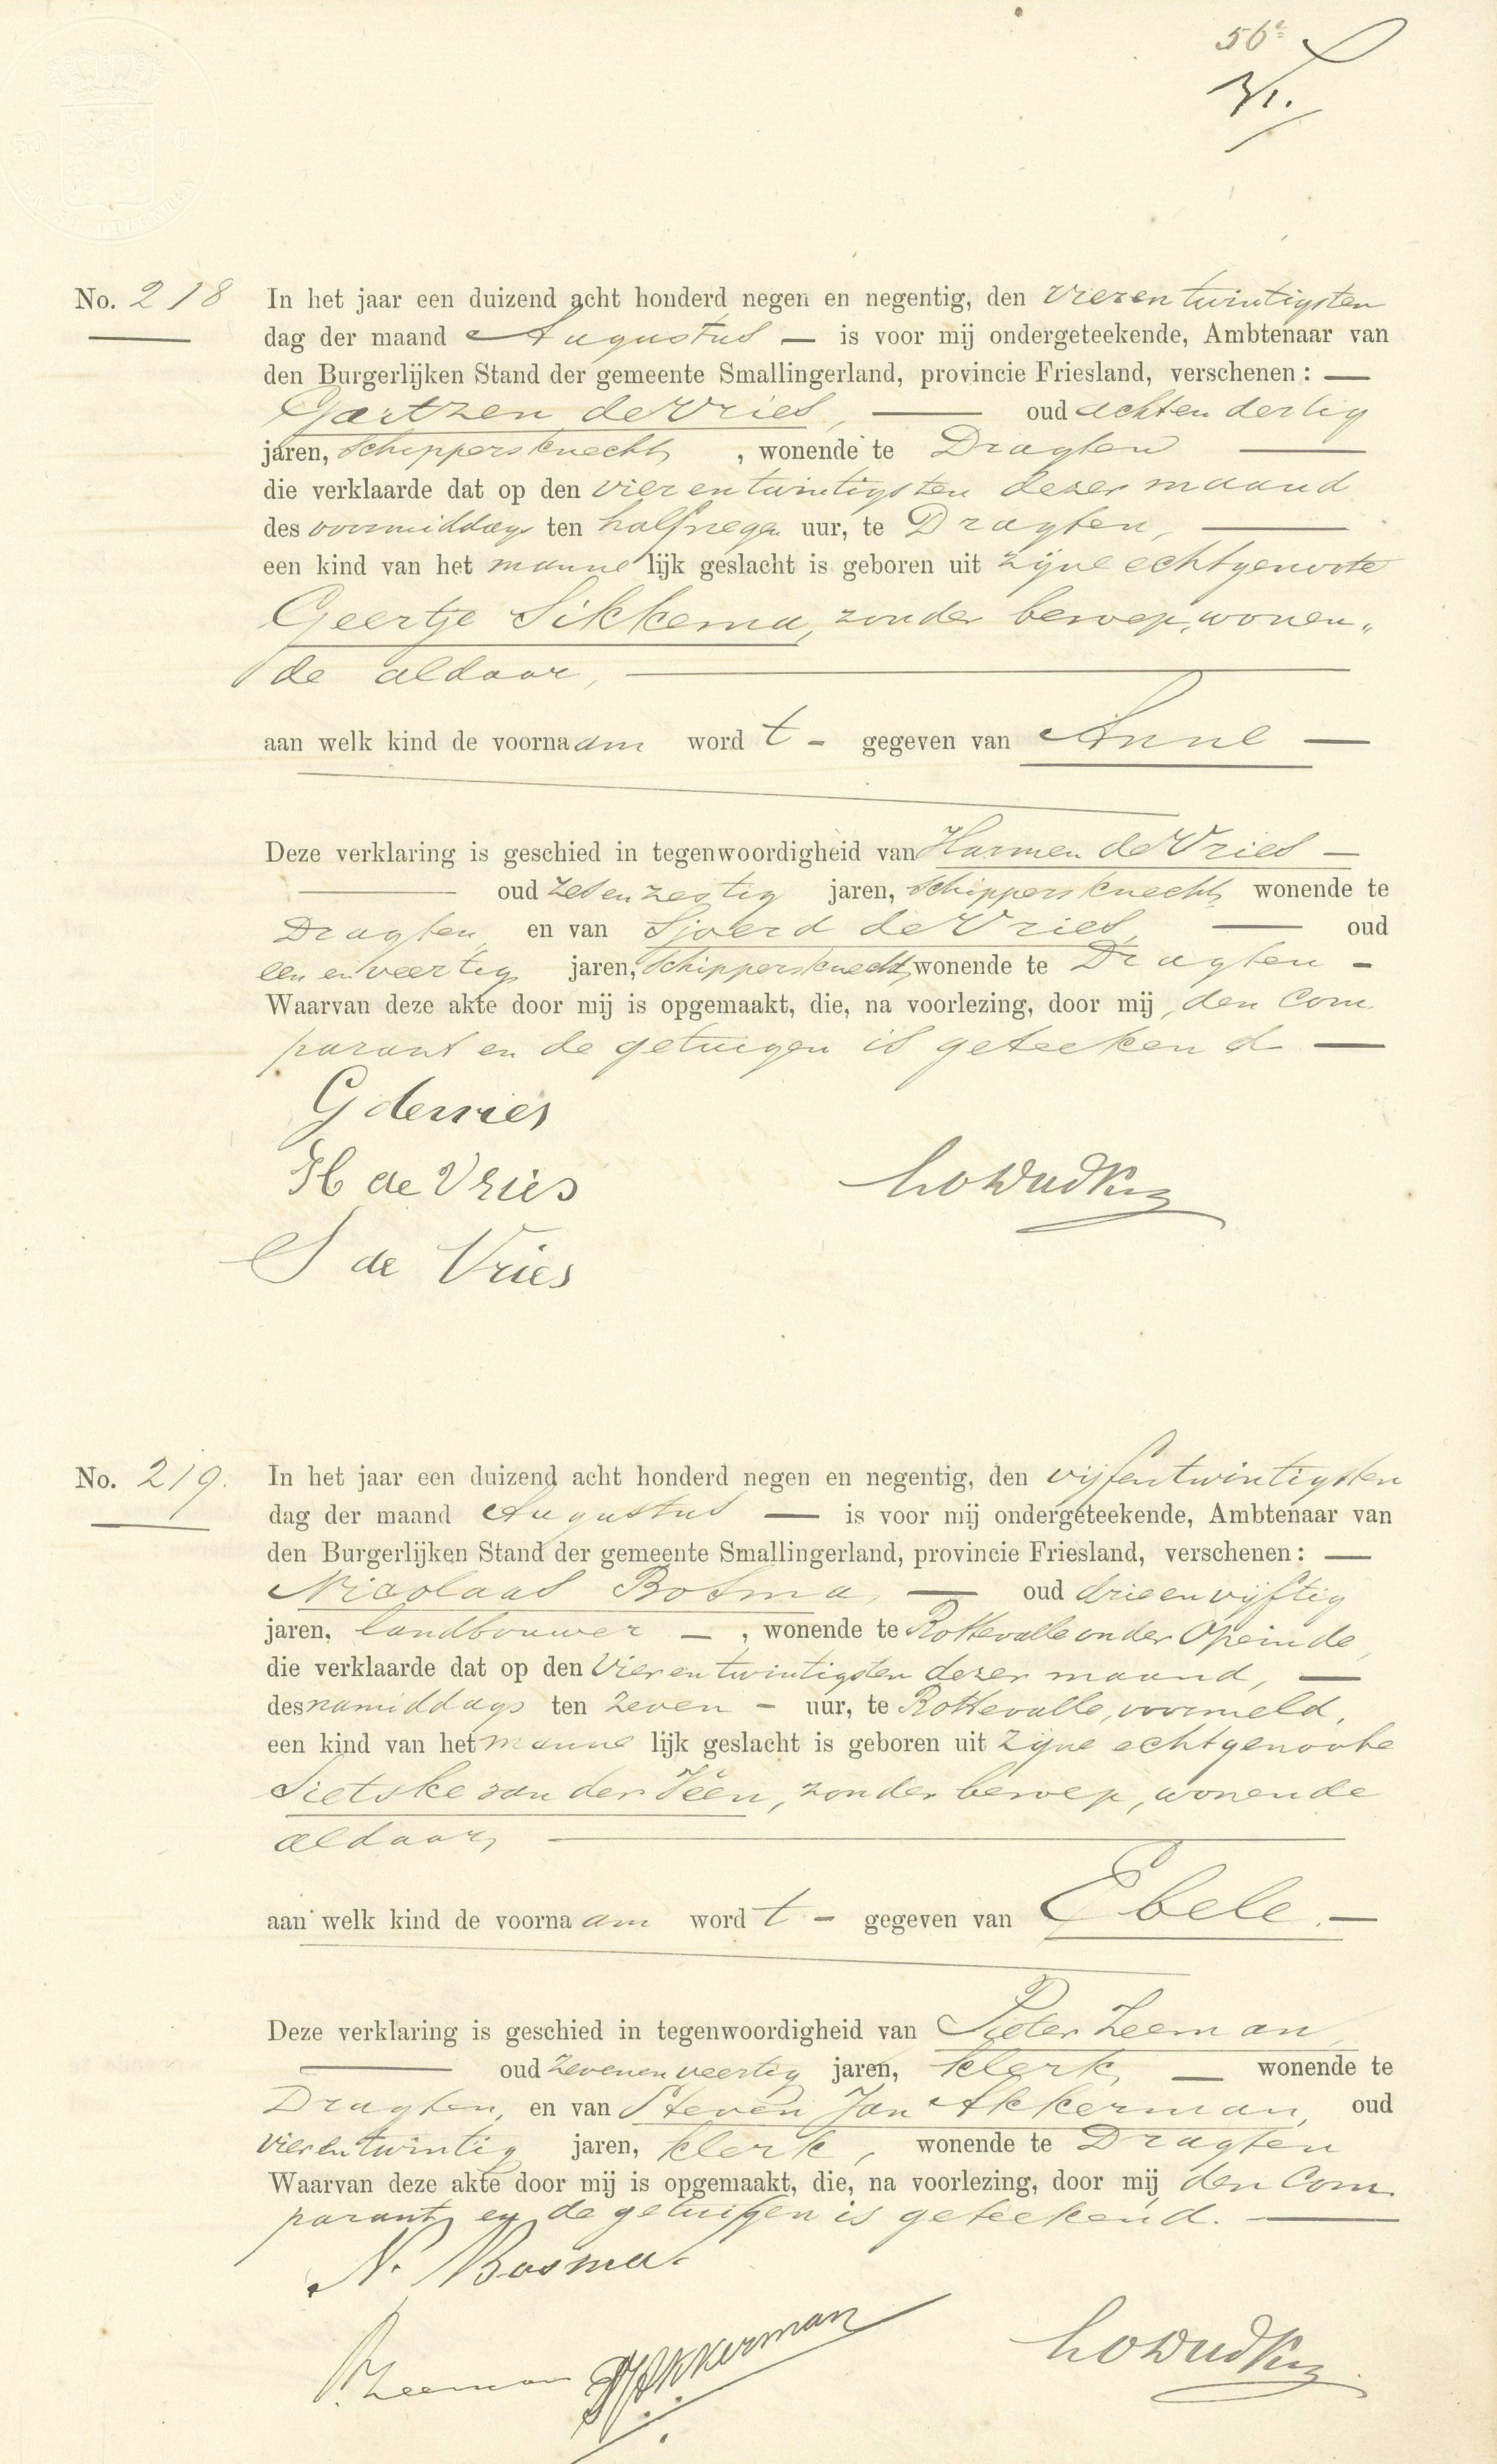 56e
No. 218 In het jaar een duizend acht honderd negen en negentig, den vierentwintigsten
dag der maand Augustus — is voor mij ondergeteekende, Ambtenaar van
den Burgerlijken Stand der gemeente Smallingerland, provincie Friesland, verschenen: —
de Vries, — oud achtendertig
jaren, schippersknecht, wonende te Dragten —
die verklaarde dat op den vierentwintigsten dezer maand
des voormiddags ten halfnegen uur, te Dragten, —
een kind van het mannelijk geslacht is geboren uit zijne echtgenoote
Geertje Sikkema, zonder beroep, wonen„
de aldaar, —
aan welk kind de voornaam wordt - gegeven van Anne —
Deze verklaring is geschied in tegenwoordigheid van Harmen de Vries —
— oud zesenzestig jaren, schippersknecht, wonende te
Dragten, en van Sjoerd de Vries, — oud
eenenveertig jaren, schippersknecht, wonende te Dragten -
Waarvan deze akte door mij is opgemaakt, die, na voorlezing, door mij, den Com-
parant en de getuigen is geteekend —
G de vries
H de Vries
S de Vries
No. 219. In het jaar een duizend acht honderd negen en negentig, den vijfentwintigsten
dag der maand Augustus — is voor mij ondergeteekende, Ambtenaar van
den Burgerlijken Stand der gemeente Smallingerland, provincie Friesland, verschenen: —
Nicolaas Bosma, — oud drieenvijftig
jaren, landbouwer —, wonende te Rottevalle onder Opeinde,
die verklaarde dat op den vierentwintigsten dezer maand, —
des namiddags ten zeven - uur, te Rottevalle, voormeld,
een kind van het mannelijk geslacht is geboren uit zijne echtgenoote
Sietske van der Veen, zonder beroep, wonende
aldaar, —
aan welk kind de voornaam wordt - gegeven van Ebele. —
Deze verklaring is geschied in tegenwoordigheid van Pieter Zeeman,
— oud zevenenveertig jaren, klerk, — wonende te
Dragten, en van Steven Jan Akkerman, oud
vierentwintig jaren, klerk, wonende te Dragten
Waarvan deze akte door mij is opgemaakt, die, na voorlezing, door mij, den Com-
parant, en de getuigen is geteekend. —
N. Bosma.
P. Zeeman SJAkkerman